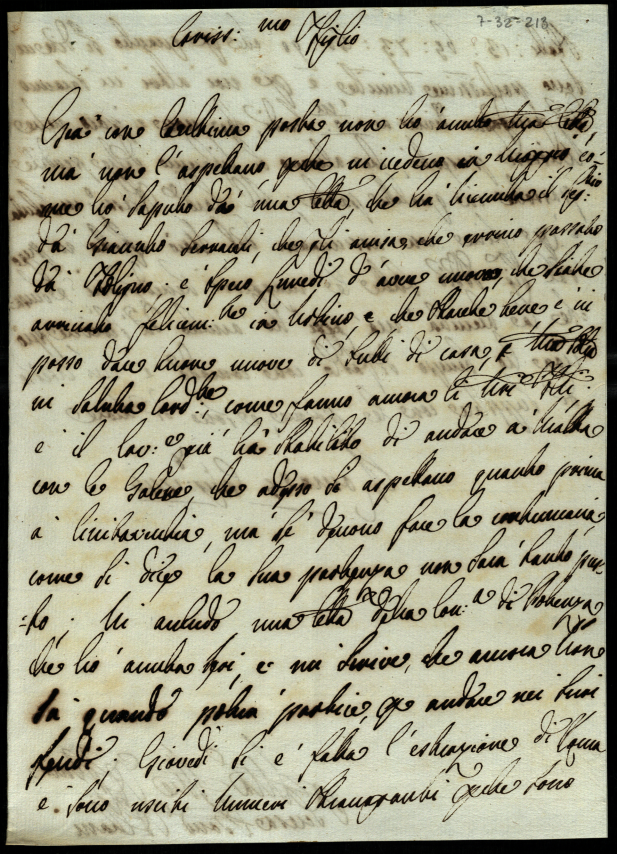 7-32-218
Cariss:mo Figlio
Già con l'ultima posta non hò avuto tua lettra,
mà non l'aspettavo perche vi credevo in Viaggio co-
me hò saputo dà una lettra, che hà ricevuta il
dà Giacinto che gli avisa che erono passato
dà Foligno, e spero Lunedì d'aver nuova, che siate
arrivato felicem:te in Urbino, e che stiate bene, e vi
posso dare buone nuove di tutti di casa, e
vi saluta cord:te, come fanno ancora li tuoi Figli,
e il Cav:re già hà stabilito di andare à Malta
con le Galere, che adesso si aspettano quanto prima
à Civitavecchia, mà se devono fare la contumacia
come si dice la sua partenza non sarà tanto pres-
-to; Vi acludo una lettra della Con:a di
che hò avuta hoggi, e mi scrive, che ancora non
sà quando potrà partire, per andare nei suoi
feudi; Giovedì si è fatta l'estrazione di Roma
e sono usciti Numeri stravaganti perche sono